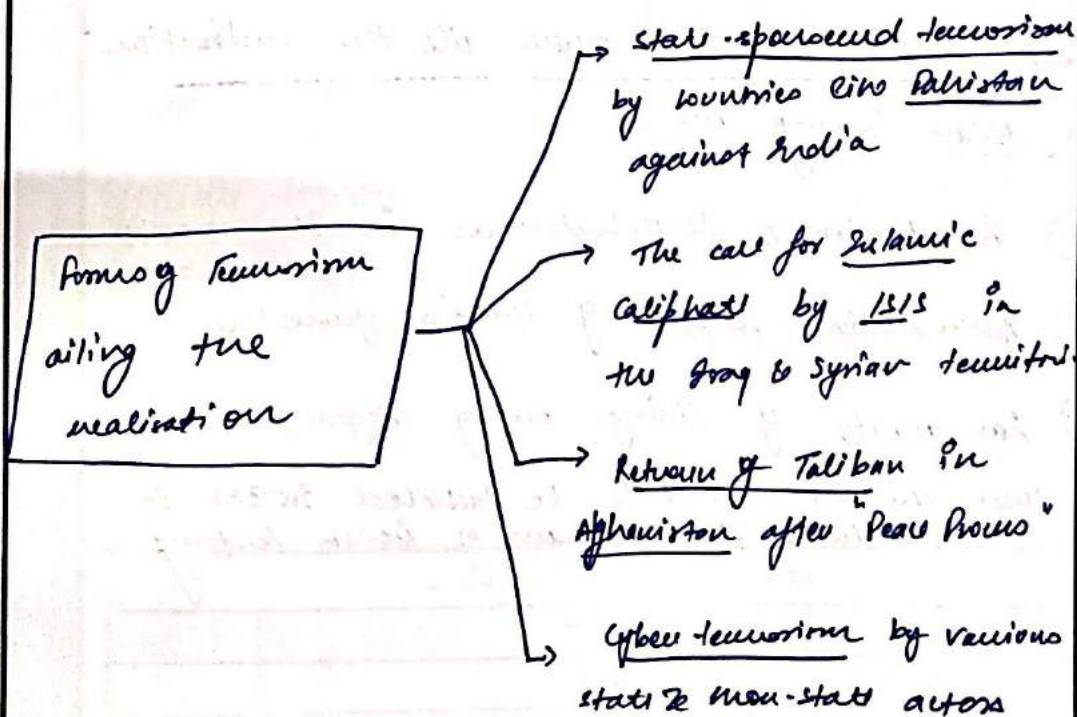 Forms of Terrorism
ailing the
realisation
State-sponsored terrorism
by countries like Pakistan
against India
The call for Islamic
Caliphate by ISIS in
the Iraq & Syrian territori
Return of Taliban in
Afghanistan after "Peace Process"
Cyber terrorism by various
state & non-state actors